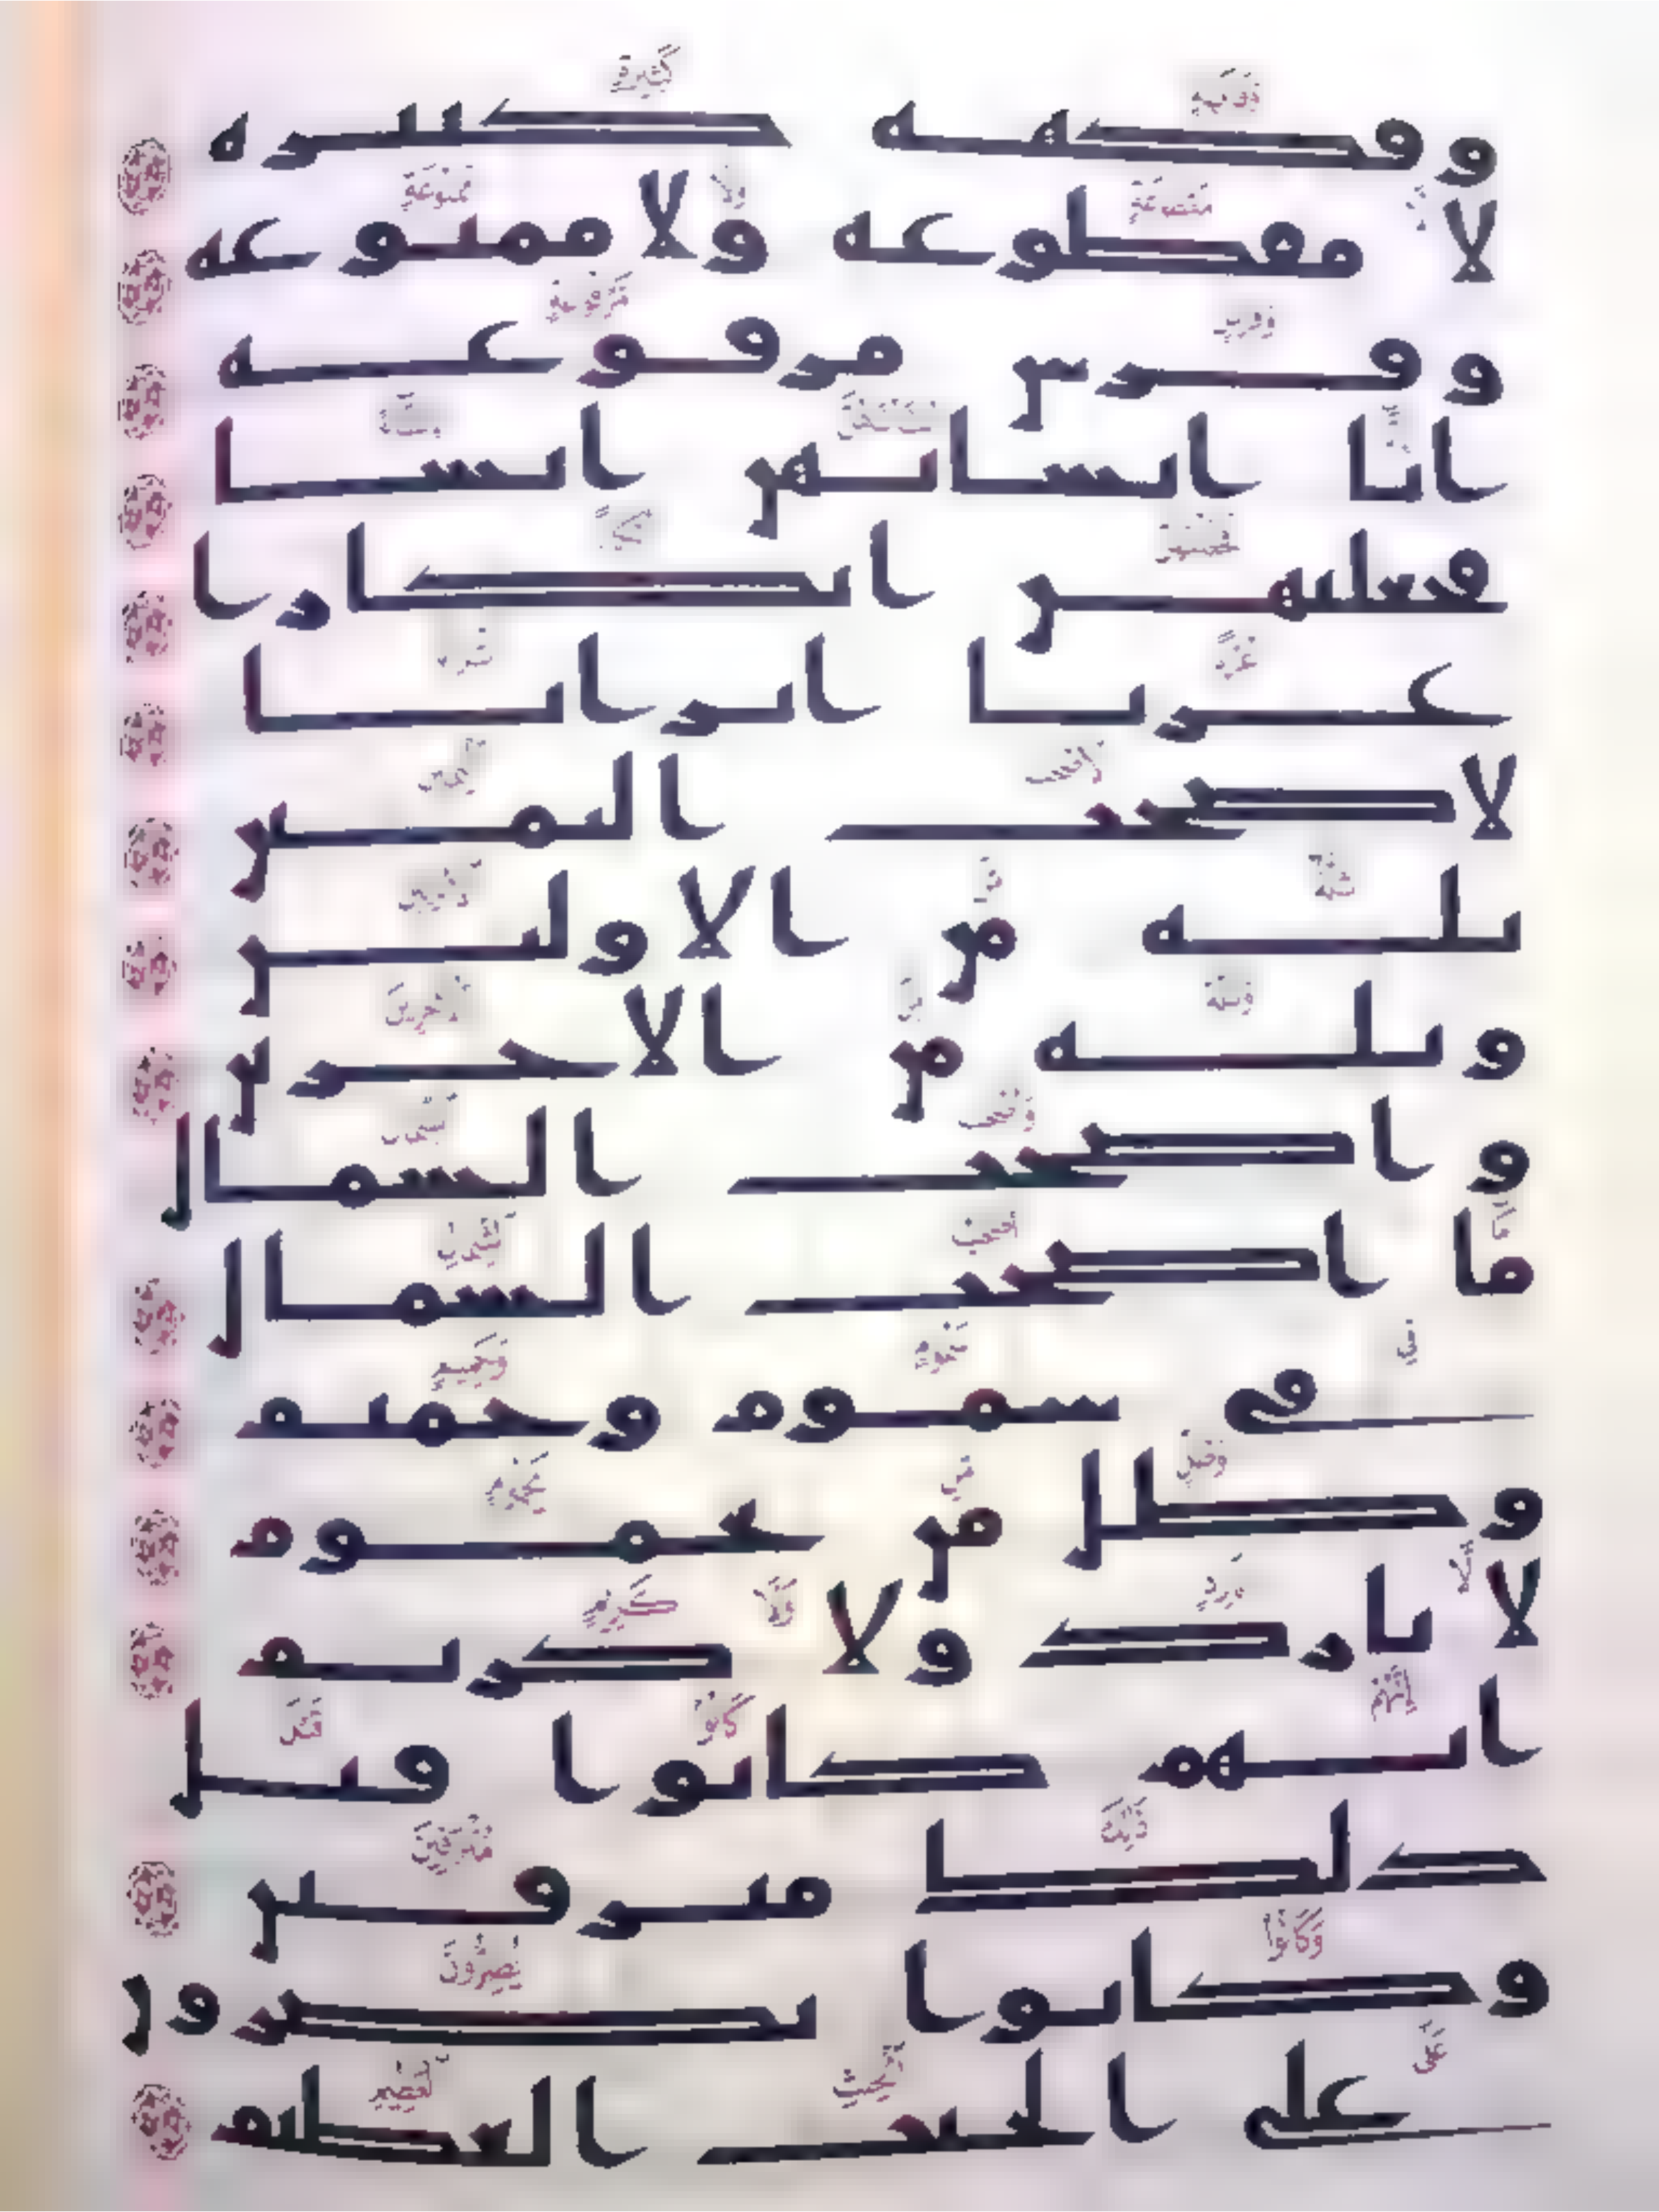 وفكهة كثيرة
لا مقطوعة ولا ممنوعة
وفرش مرفوعة
انا انشانهن انشا
فجعلنهن ابكارا
عربا اترابا
لاصحب اليمين
ثلة من الاولين
وثلة من الاخرين
واصحب الشمال
ما اصحب الشمال
في سموم وحميم
وظل من يحموم
لا بارد ولا كريم
انهم كانوا قبل
ذلك مترفين
وكانوا يصرون
على الحنث العظيم